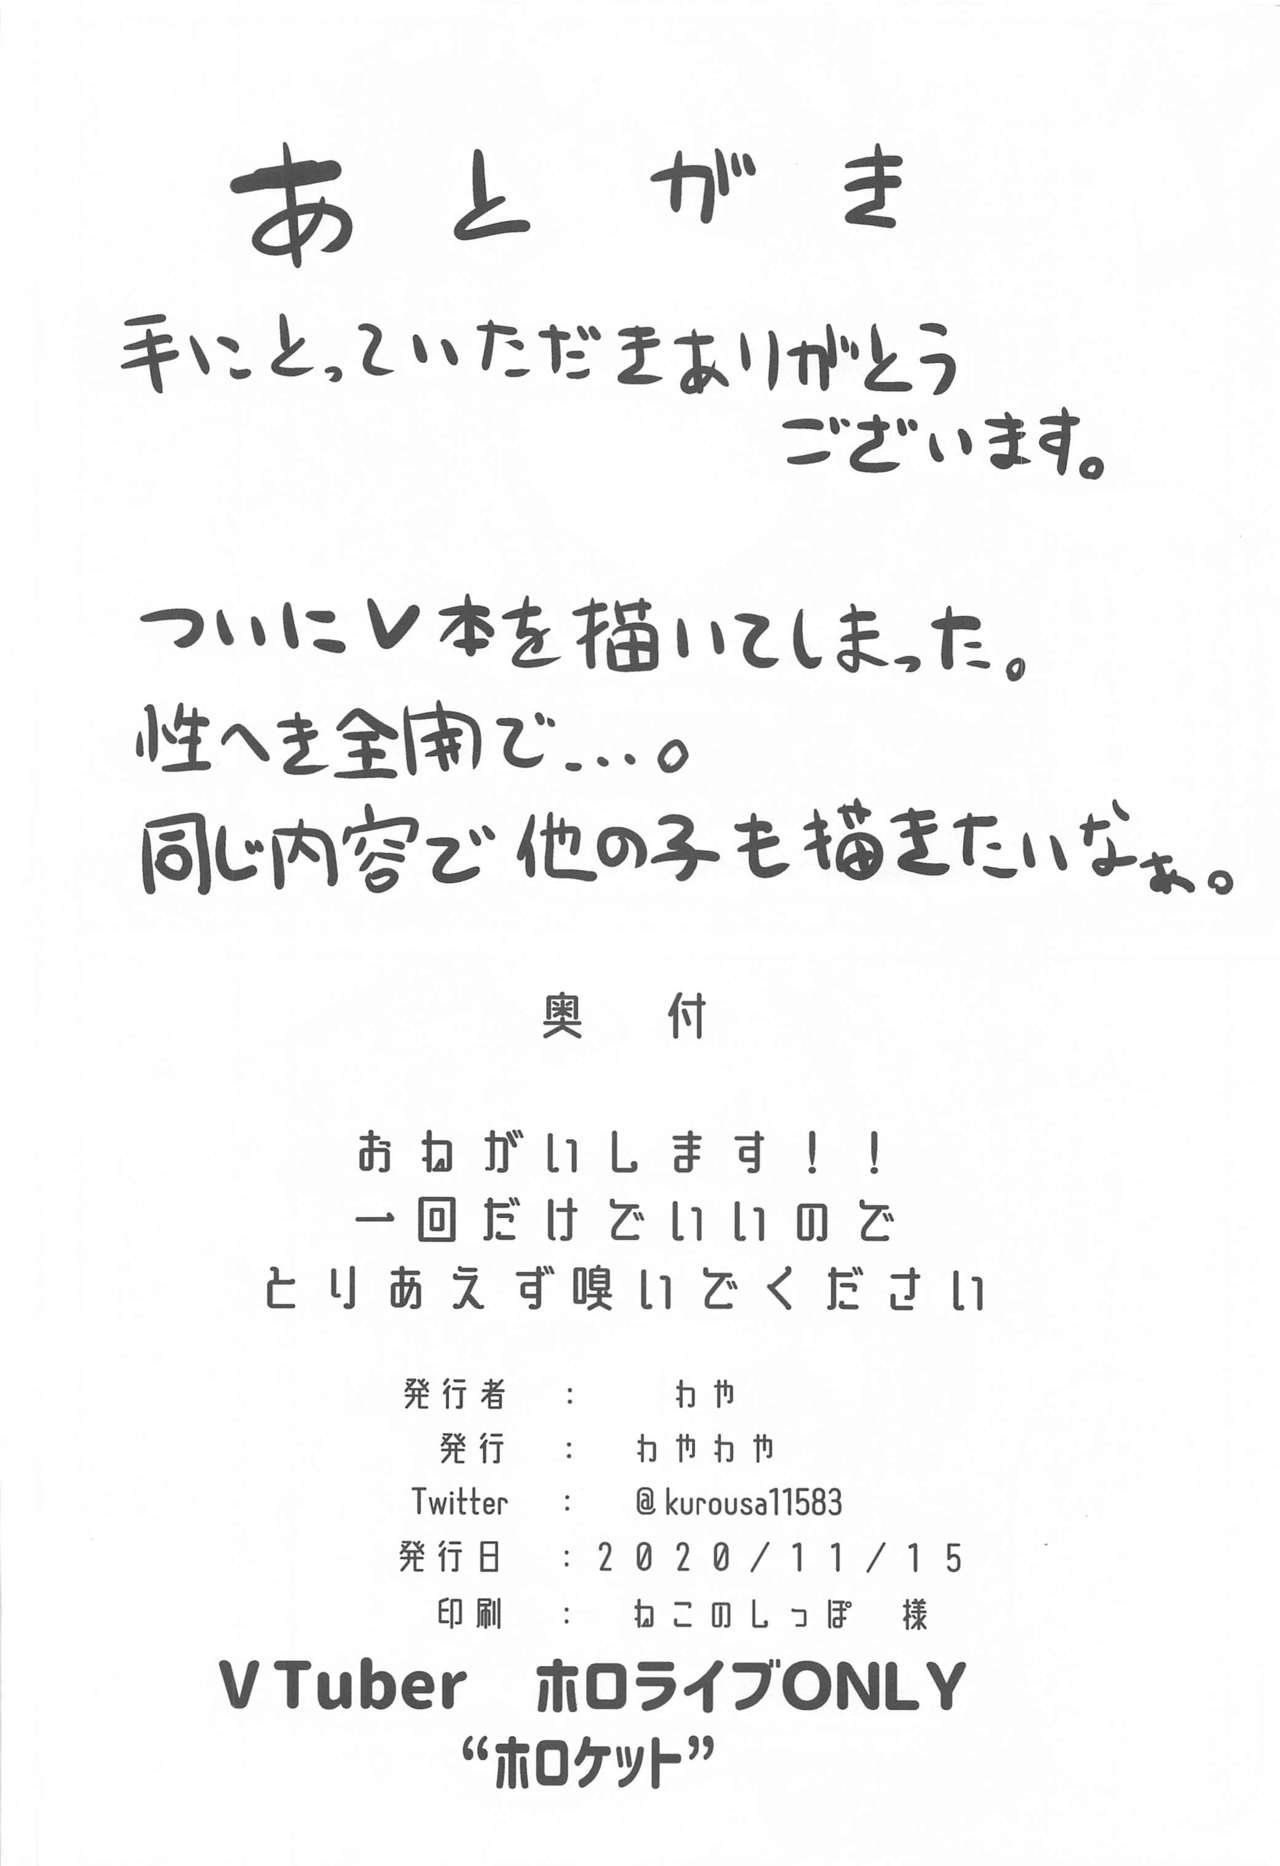 あとがき
手にとっていただきありがとう
ございます。
ついにV本を描いてしまった。
性へき全開で…。
同じ内容で他の子も描きたいなぁ。
奥付
おねがいします！！
一回だけでいいので
とりあえず嗅いでください
発行者 : わや
発行 : わやわや
Twitter : @kurousa11583
発行日 : 2020/11/15
印刷 : ねこのしっぽ 様
VTuber ホロライブONLY
“ホロケット”